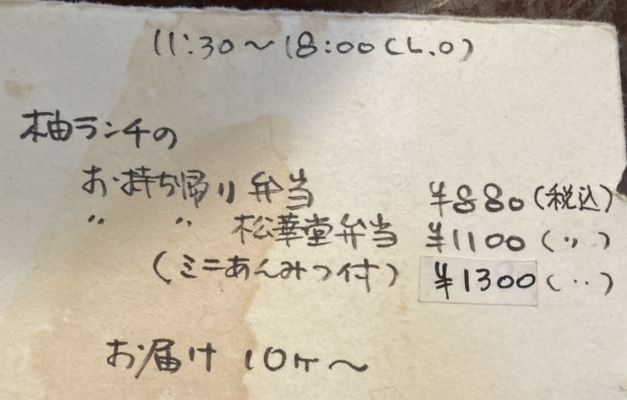 11:30～18:00(L.O)
柚ランチの
お持ち帰り弁当 ¥880(税込)
〃 〃 松華堂弁当 ¥1100(〃)
(ミニあんみつ付) ¥1300(〃)
お届け 10ヶ～